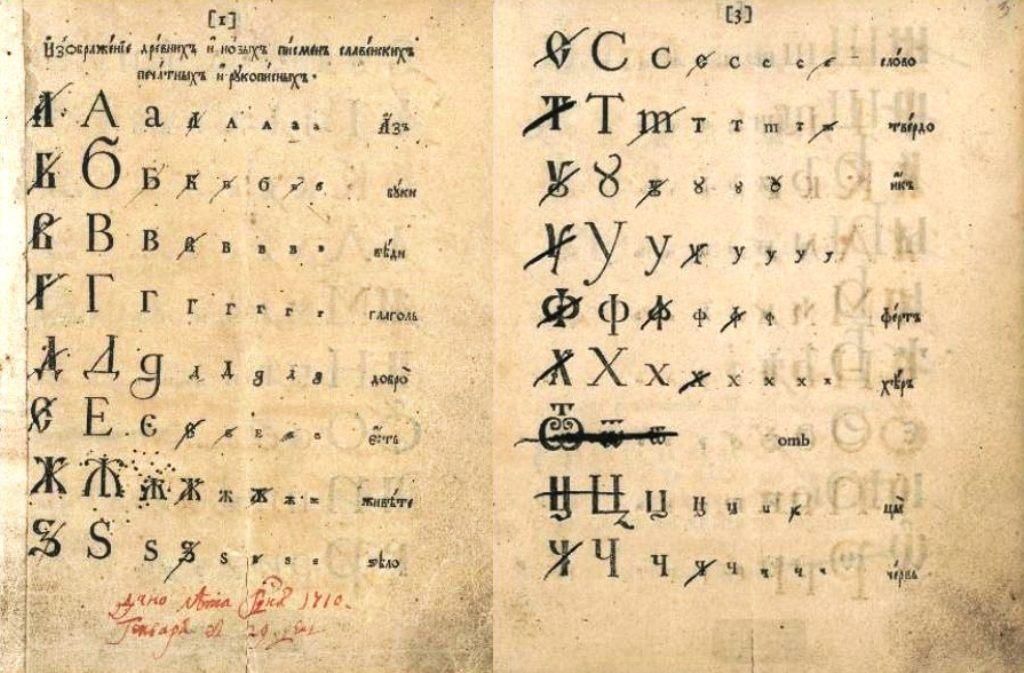 [1]
И҆зѡбраже́нїе дре́внихъ и҆ но́выхъ пи́сменъ славе́нскихъ
печа́тныхъ и҆ рꙋкопи́сныхъ.
А А а А А а а а А҆́зъ
Б Б Б Б в б в в бꙋ́ки
В В В В в в в в вѣ́ди
Г Г Г Г г г г г глаго́ль
Д Д д д Д д д д добро̀
Є Е є е е е е е є҆́сть
Ж Ж Ж Ж ж ж ж ж живѣ́те
Ѕ Ѕ ѕ ѕ ѕ ѕ ѕ ѕ ѕѣло̀
1710.
Генваря 29
[3]
С С с с с с с с сло́во
Т Т т т т т т т тве́рдо
Ꙋ Ꙋ ꙋ ꙋ ꙋ ꙋ и҆́къ
У У у у у у у у
Ф Ф ф ф ф ф ф фе́ртъ
Х Х х х х х х х хѣ́ръ
Ѿ ѿ ѿ отъ
Ц Ц ц ц ц ц ц цы̀
Ч Ч ч ч ч ч ч ч че́рвь